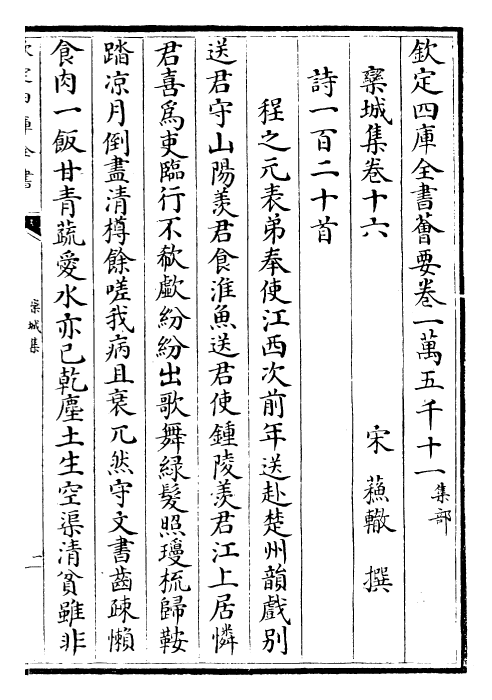 欽定四庫全書薈要卷一萬五千十一集部
欒城集卷十六
宋蘓轍撰
詩一百二十首
程之元表弟奉使江西次前年送赴楚州韻戲别
送君守山陽羨君食淮魚送君使鍾陵羨君江上居憐
君喜為吏臨行不欷歔紛紛出歌舞緑髮照瓊梳歸鞍
踏凉月倒盡清樽餘嗟我病且衰兀然守文書齒疎懶
食肉一飯甘青蔬愛水亦已乾塵土生空渠清貧雖非
欽定四庫全書
欒城集
一